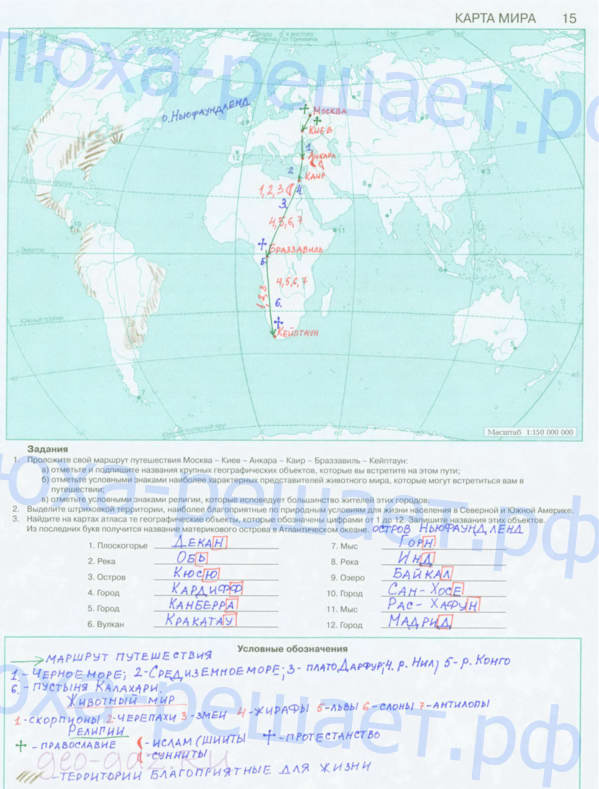 КАРТА МИРА 15
люха-решает.рф
о. Ньюфаундленд
Москва
Киев
1.
Анкара
2
Каир
1,2,3
4.
3.
4,5,6,7
Браззавиль
5.
4,5,6,7
1,2,3
6.
Кейптаун
Экватор
Масштаб 1:150 000 000
Задания
1. Проложите свой маршрут путешествия Москва – Киев – Анкара – Каир – Браззавиль – Кейптаун:
а) отметьте и подпишите названия крупных географических объектов, которые вы встретите на этом пути;
б) отметьте условными знаками наиболее характерных представителей животного мира, которые могут встретиться вам в
путешествии;
в) отметьте условными знаками религии, которые исповедует большинство жителей этих городов.
2. Выделите штриховкой территории, наиболее благоприятные по природным условиям для жизни населения в Северной и Южной Америке.
3. Найдите на картах атласа те географические объекты, которые обозначены цифрами от 1 до 12. Запишите названия этих объектов.
Из последних букв получится название материкового острова в Атлантическом океане. остров Ньюфаундленд
люха-решает.рф
1. Плоскогорье Декан
2. Река Обь
3. Остров Кюсю
4. Город Кардифф
5. Город Канберра
6. Вулкан Кракатау
7. Мыс Горн
8. Река Инд
9. Озеро Байкал
10. Город Сан-Хосе
11. Мыс Рас-Хафун
12. Город Мадрид
Условные обозначения
маршрут путешествия
1 - Черное море; 2 - Средиземное море; 3 - плато Дарфур; 4. р. Нил; 5 - р. Конго
6. - пустыня Калахари
Животный мир
1 - скорпионы 2 - черепахи 3 - змеи 4 - жирафы 5 - львы 6 - слоны 7 - антилопы
Религии
- православие - ислам (шииты - протестанство
сунниты
- территории благоприятные для жизни
люха-решает.рф
geo-gdz.ru